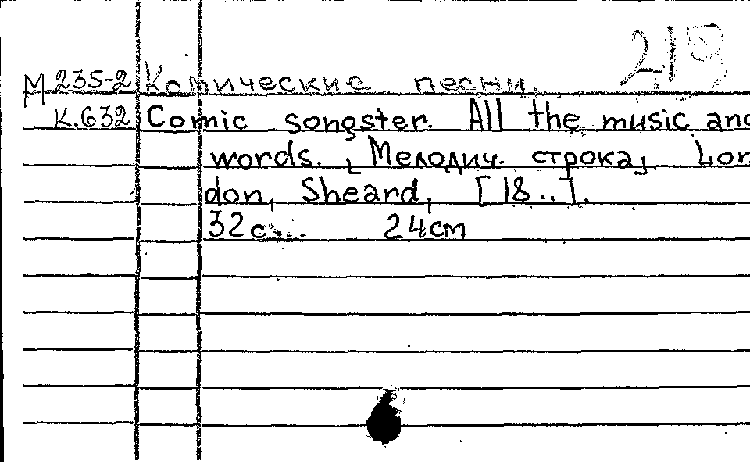 219
М 235-2 Комические песни.
К.632 Comic songster. All the music and
words. [Мелодич. строка] Lon
don, Sheard, [18..].
32с. 24см